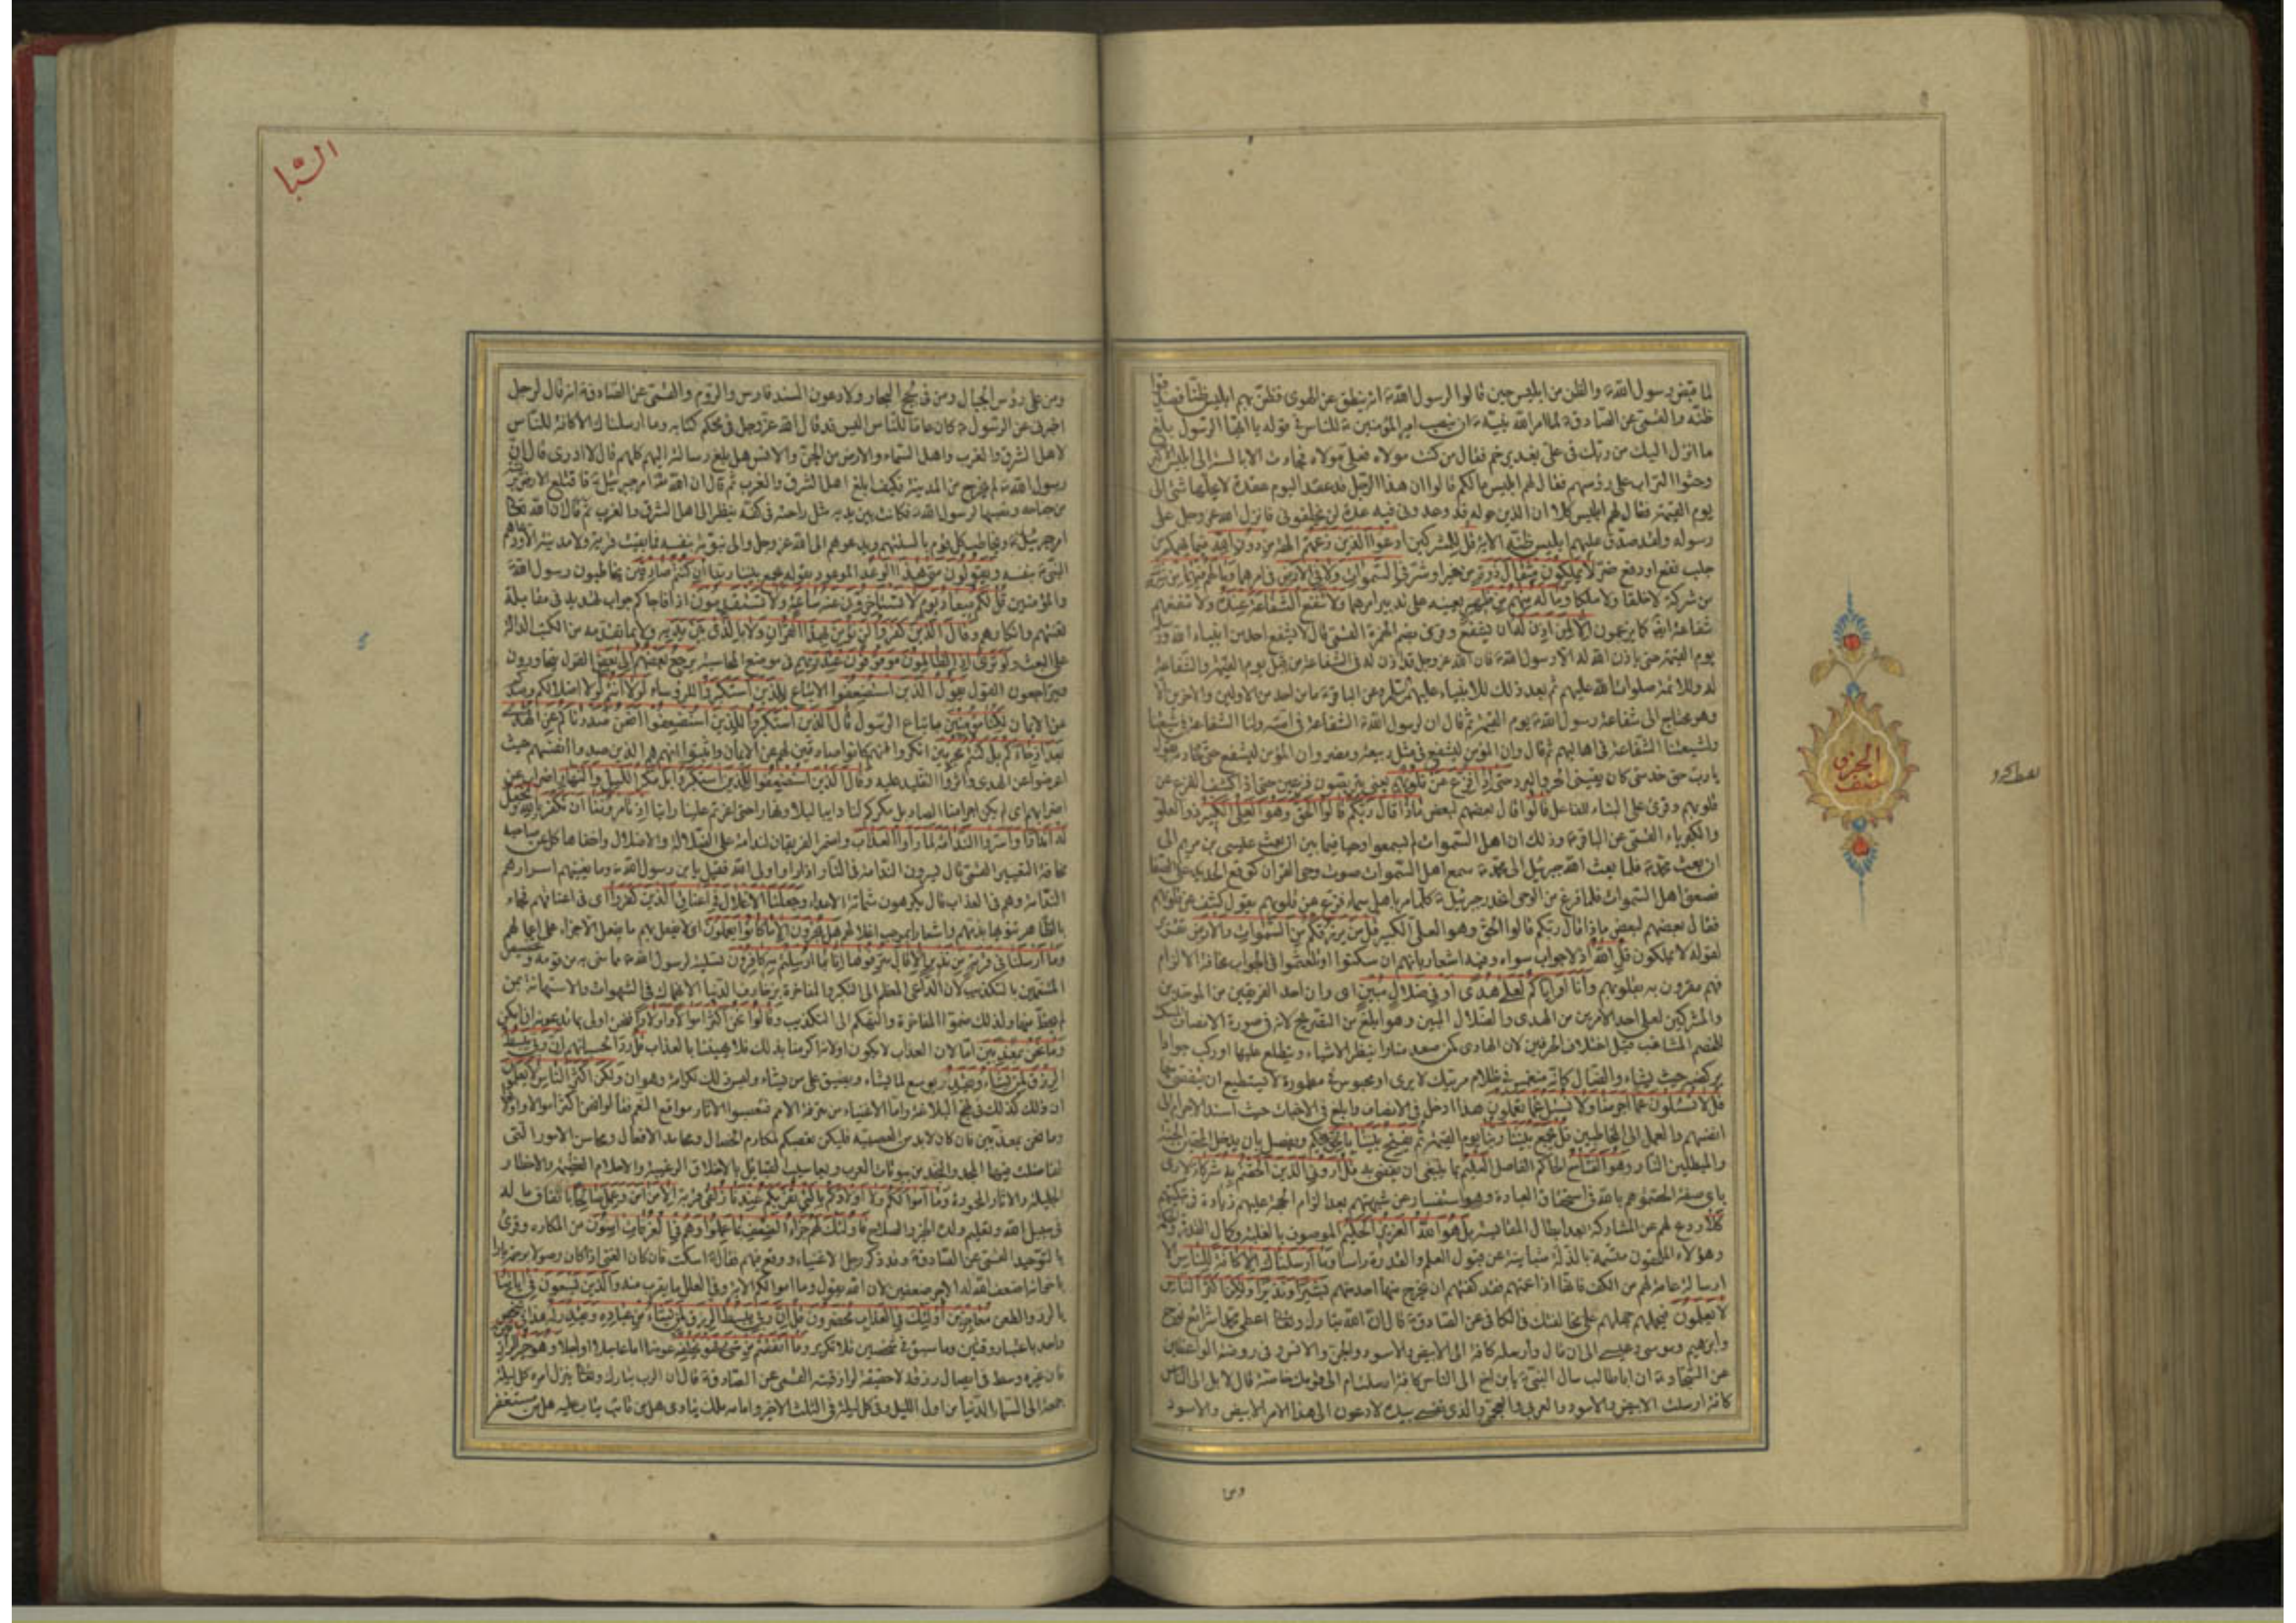 لما قبض رسول الله ص والظن من ابليس حين قالوا لرسول الله ص انه ينطق عن الهوى فظن بهم ابليس ظنا فصدقوا
ظنه والقمي عن الصادق ع لما امر الله نبيه ص ان ينصب امير المؤمنين ع للناس في قوله يا ايها الرسول بلغ
ما انزل اليك من ربك في علي بغدير خم فقال من كنت مولاه فعلي مولاه فجاءت الابالسة الى ابليس الاكبر
وحثوا التراب على رؤسهم فقال لهم ابليس ما لكم قالوا ان هذا الرجل قد عقد اليوم عقدة لا يحلها شئ الى
يوم القيمة فقال لهم ابليس كلا ان الذين حوله قد وعدوني فيه عدة لن يخلفوني فانزل الله عز وجل على
رسوله ولقد صدق عليهم ابليس ظنه الاية قل للمشركين ادعوا الذين زعمتم الهة من دون الله فيما يهمكم من
جلب نفع او دفع ضر لا يملكون مثقال ذرة من خير او شر في السموات ولا في الارض في امر هما وما لهم فيهما من شرك
من شركة لا خلقا ولا ملكا وما له منهم من ظهير يعينه على تدبير امرهما ولا تنفع الشفاعة عنده ولا تنفعهم
شفاعة ايضا كما يزعمون الا لمن اذن له ان يشفع وقرئ بضم الهمزة القمي قال لا يشفع احد من انبياء الله ورسله
يوم القيمة حتى ياذن الله له الا رسول الله ص فان الله عز وجل قد اذن له في الشفاعة من قبل يوم القيمة والشفاعة
له وللائمة صلوات الله عليهم ثم بعد ذلك للانبياء عليهم السلام وعن الباقر ع ما من احد من الاولين والاخرين الا
وهو محتاج الى شفاعة رسول الله ص يوم القيمة ثم قال ان لرسول الله ص الشفاعة في امته ولنا الشفاعة في شيعتنا
ولشيعتنا الشفاعة في اهاليهم ثم قال وان المؤمن ليشفع في مثل ربيعة ومضر وان المؤمن ليشفع حتى لخادمه ويقول
يا رب حق خدمتي كان يقيني الحر والبرد حتى اذا فزع عن قلوبهم يعني يتربصون فزعين حتى اذا كشف الفزع عن
قلوبهم وقرئ على البناء للفاعل قالوا قال بعضهم لبعض ماذا قال ربكم قالوا الحق وهو العلي الكبير ذو العلو
والكبرياء القمي عن الباقر ع وذلك ان اهل السموات لم يسمعوا وحيا فيما بين ان بعث عيسى بن مريم الى
ان بعث محمد ص فلما بعث الله جبرئيل الى محمد ص سمع اهل السموات صوت وحي القران كوقع الحديد على الصفا
فصعق اهل السموات فلما فرغ من الوحي انحدر جبرئيل ع كلما مر باهل سماء فزع عن قلوبهم يقول كشف عن قلوبهم
فقال بعضهم لبعض ماذا قال ربكم قالوا الحق وهو العلي الكبير قل من يرزقكم من السموات والارض
لقوله لا يملكون قل الله اذ لا جواب سواه وفيه اشعار بانهم ان سكتوا او تلعثموا في الجواب مخافة الالزام
فهم مقرون به بقلوبهم وانا او اياكم لعلى هدى او في ضلال مبين اي وان احد الفريقين من الموحدين
والمشركين لعلى احد الامرين من الهدى والضلال المبين وهو ابلغ من التصريح لانه في صورة الانصاف المسكت
للخصم المشاغب قيل اختلاف الحرفين لان الهادي كمن صعد منارا ينظر الاشياء ويتطلع عليها او ركب جوادا
يركضه حيث يشاء والضال كانه منغمس في ظلام مرتبك لا يرى او محبوس في مطمورة لا يستطيع ان يتفصى منها
قل لا تسئلون عما اجرمنا ولا نسئل عما تعملون هذا ادخل في الانصاف وابلغ في الاخبات حيث اسند الاجرام الى
انفسهم والعمل الى المخاطبين قل يجمع بيننا ربنا يوم القيمة ثم يفتح بيننا بالحق يحكم ويفصل بان يدخل المحقين الجنة
والمبطلين النار وهو الفتاح الحاكم الفاصل العليم بما ينبغي ان يقضى به قل اروني الذين الحقتم به شركاء لارى
باي صفة الحقتموهم بالله في استحقاق العبادة وهو استفسار عن شبهتهم بعد الزام الحجة عليهم زيادة في تبكيتهم
كلا ردع لهم عن المشاركة بعد ابطال المقايسة بل هو الله العزيز الحكيم الموصوف بالغلبة وكمال القدرة والحكمة
وهؤلاء الملحقون متسمة بالذلة متابية عن قبول العلم والقدرة راسا وما ارسلناك الا كافة للناس الا
ارسالة عامة لهم من الكف فانها اذا عمتهم فقد كفتهم ان يخرج منها احد منهم بشيرا ونذيرا ولكن اكثر الناس
لا يعلمون فيحملهم جهلهم على مخالفتك في الكافي عن الصادق ع قال ان الله تبارك وتعالى اعطى محمدا شرائع نوح
وابرهيم وموسى وعيسى الى ان قال وارسله كافة الى الابيض والاسود والجن والانس وفي روضة الواعظين
عن السجاد ع ان ابا طالب سال النبي ص يا ابن اخ الى الناس كافة ارسلت ام الى قومك خاصة قال لا بل الى الناس
كافة ارسلت الابيض والاسود والعربي والعجمي والذي نفسي بيده لادعون الى هذا الامر الابيض والاسود
ومن
الحزب
نصف
السبا
ومن على رؤس الجبال ومن في لجج البحار ولادعون السنة فارس والروم والقمي عن الصادق ع انه قال لرجل
اخبرني عن الرسول ص كان عاما للناس اليس قد قال الله عز وجل في محكم كتابه وما ارسلناك الا كافة للناس
لاهل الشرق والغرب واهل السماء والارض من الجن والانس هل بلغ رسالته اليهم كلهم قال لا ادري قال ان
رسول الله ص لم يخرج من المدينة فكيف ابلغ اهل الشرق والغرب ثم قال ان الله تعالى امر جبرئيل ع فاقتلع الارض بريشة
من جناحه ونصبها لرسول الله ص فكانت بين يديه مثل راحته في كفه ينظر الى اهل الشرق والغرب
ويخاطب كل قوم بالسنتهم ويدعوهم الى الله عز وجل والى نبوته بنفسه فما بقيت قرية ولا مدينة الا ودعاهم
النبي ص بنفسه ويقولون متى هذا الوعد الموعود بقوله يجمع بيننا ربنا ان كنتم صادقين يخاطبون رسول الله ص
والمؤمنين قل لكم ميعاد يوم لا تستاخرون عنه ساعة ولا تستقدمون اذا فاجاكم جواب تهديد في مقابلة
تعنتهم وانكارهم وقال الذين كفروا لن نؤمن بهذا القران ولا بالذي بين يديه ولا بما تقدمه من الكتب الدالة
على البعث ولو ترى اذ الظالمون موقوفون عند ربهم في موضع المحاسبة يرجع بعضهم الى بعض القول يتحاورون
ويتراجعون القول يقول الذين استضعفوا الاتباع للذين استكبروا للرؤساء لولا انتم لولا اضلالكم وصدكم
عن الايمان لكنا مؤمنين باتباع الرسول قال الذين استكبروا للذين استضعفوا انحن صددناكم عن الهدى
بعد اذ جاءكم بل كنتم مجرمين انكروا انهم كانوا صادين لهم عن الايمان واثبتوا انهم هم الذين صدوا انفسهم حيث
اعرضوا عن الهدى واثروا التقليد عليه وقال الذين استضعفوا للذين استكبروا بل مكر الليل والنهار اضراب عن
اضرابهم اي لم يكن اجرامنا الصاد بل مكركم لنا دايبا ليلا ونهارا حتى اغرتم علينا راينا اذ تامروننا ان نكفر بالله ونجعل
له اندادا واسروا الندامة لما راوا العذاب واضمر الفريقان الندامة على الضلالة والاضلال واخفاها كل عن صاحبه
مخافة التعيير القمي قال يسرون الندامة في النار اذا راوا ولي الله فقيل يا بن رسول الله ص وما يغنيهم اسرارهم
الندامة وهم في العذاب قال يكرهون شماتة الاعداء وجعلنا الاغلال في اعناق الذين كفروا اي في اعناقهم فجاء
بالظاهر تنويها بذمهم واشعارا بموجب اغلالهم هل يجزون الا ما كانوا يعملون اي لا يفعل بهم ما يفعل الا جزاء على اعمالهم
وما ارسلنا في قرية من نذير الا قال مترفوها انا بما ارسلتم به كافرون تسلية لرسول الله ص مما مني به من قومه وتخصيص
المتنعمين بالتكذيب لان الداعي المعظم الى التكبر والمفاخرة بزخارف الدنيا الانهماك في الشهوات والاستهانة بمن
لم يحظ منها ولذلك ضموا المفاخرة والتهكم الى التكذيب وقالوا نحن اكثر اموالا واولادا فنحن اولى بما تدعونه ان امكن
وما نحن بمعذبين اما لان العذاب لا يكون او لانه اكرمنا بذلك فلا يهيننا بالعذاب قل ردا لحسبانهم ان ربي يبسط
الرزق لمن يشاء ويقدر يوسع لمن يشاء ويضيق على من يشاء وليس ذلك لكرامة وهوان ولكن اكثر الناس لا يعلمون
ان ذلك كذلك في نهج البلاغة واما الاغنياء من مترفة الامم فتعصبوا لاثار مواقع النعم فقالوا نحن اكثر اموالا واولادا
وما نحن بمعذبين فان كان لا بد من العصبية فليكن تعصبكم لمكارم الخصال ومحامد الافعال ومحاسن الامور التي
تفاضلت فيها المجداء والنجداء من بيوتات العرب ويعاسيب القبائل بالاخلاق الرغيبة والاحلام العظيمة والاخطار
الجليلة والاثار المحمودة وما اموالكم ولا اولادكم بالتي تقربكم عندنا زلفى قربة الا من امن وعمل صالحا بانفاق ماله
في سبيل الله وتعليم ولده الخير والصلاح فاولئك لهم جزاء الضعف بما عملوا وهم في الغرفات امنون من المكاره وقرئ
بالتوحيد القمي عن الصادق ع وقد ذكر رجل الاغنياء ووقع فيهم فقال ع اسكت فان الغني اذا كان وصولا برحمه بارا
باخوانه اضعف الله له الاجر ضعفين لان الله يقول وما اموالكم الاية وفي العلل ما يقرب منه والذين يسعون في اياتنا
بالرد والطعن معاجزين اولئك في العذاب محضرون قل ان ربي يبسط الرزق لمن يشاء من عباده ويقدر له هذا في شخص
واحد باعتبار وقتين وما سبق في شخصين فلا تكرير وما انفقتم من شئ فهو يخلفه عوضا اما عاجلا او اجلا وهو خير الرازقين
فان غيره وسط في ايصال رزقه لا حقيقة لرازقيته القمي عن الصادق ع قال ان الرب تبارك وتعالى ينزل امره كل ليلة
جمعة الى السماء الدنيا من اول الليل وفي كل ليلة في الثلث الاخير وامامه ملك ينادي هل من تائب يتاب عليه هل من مستغفر